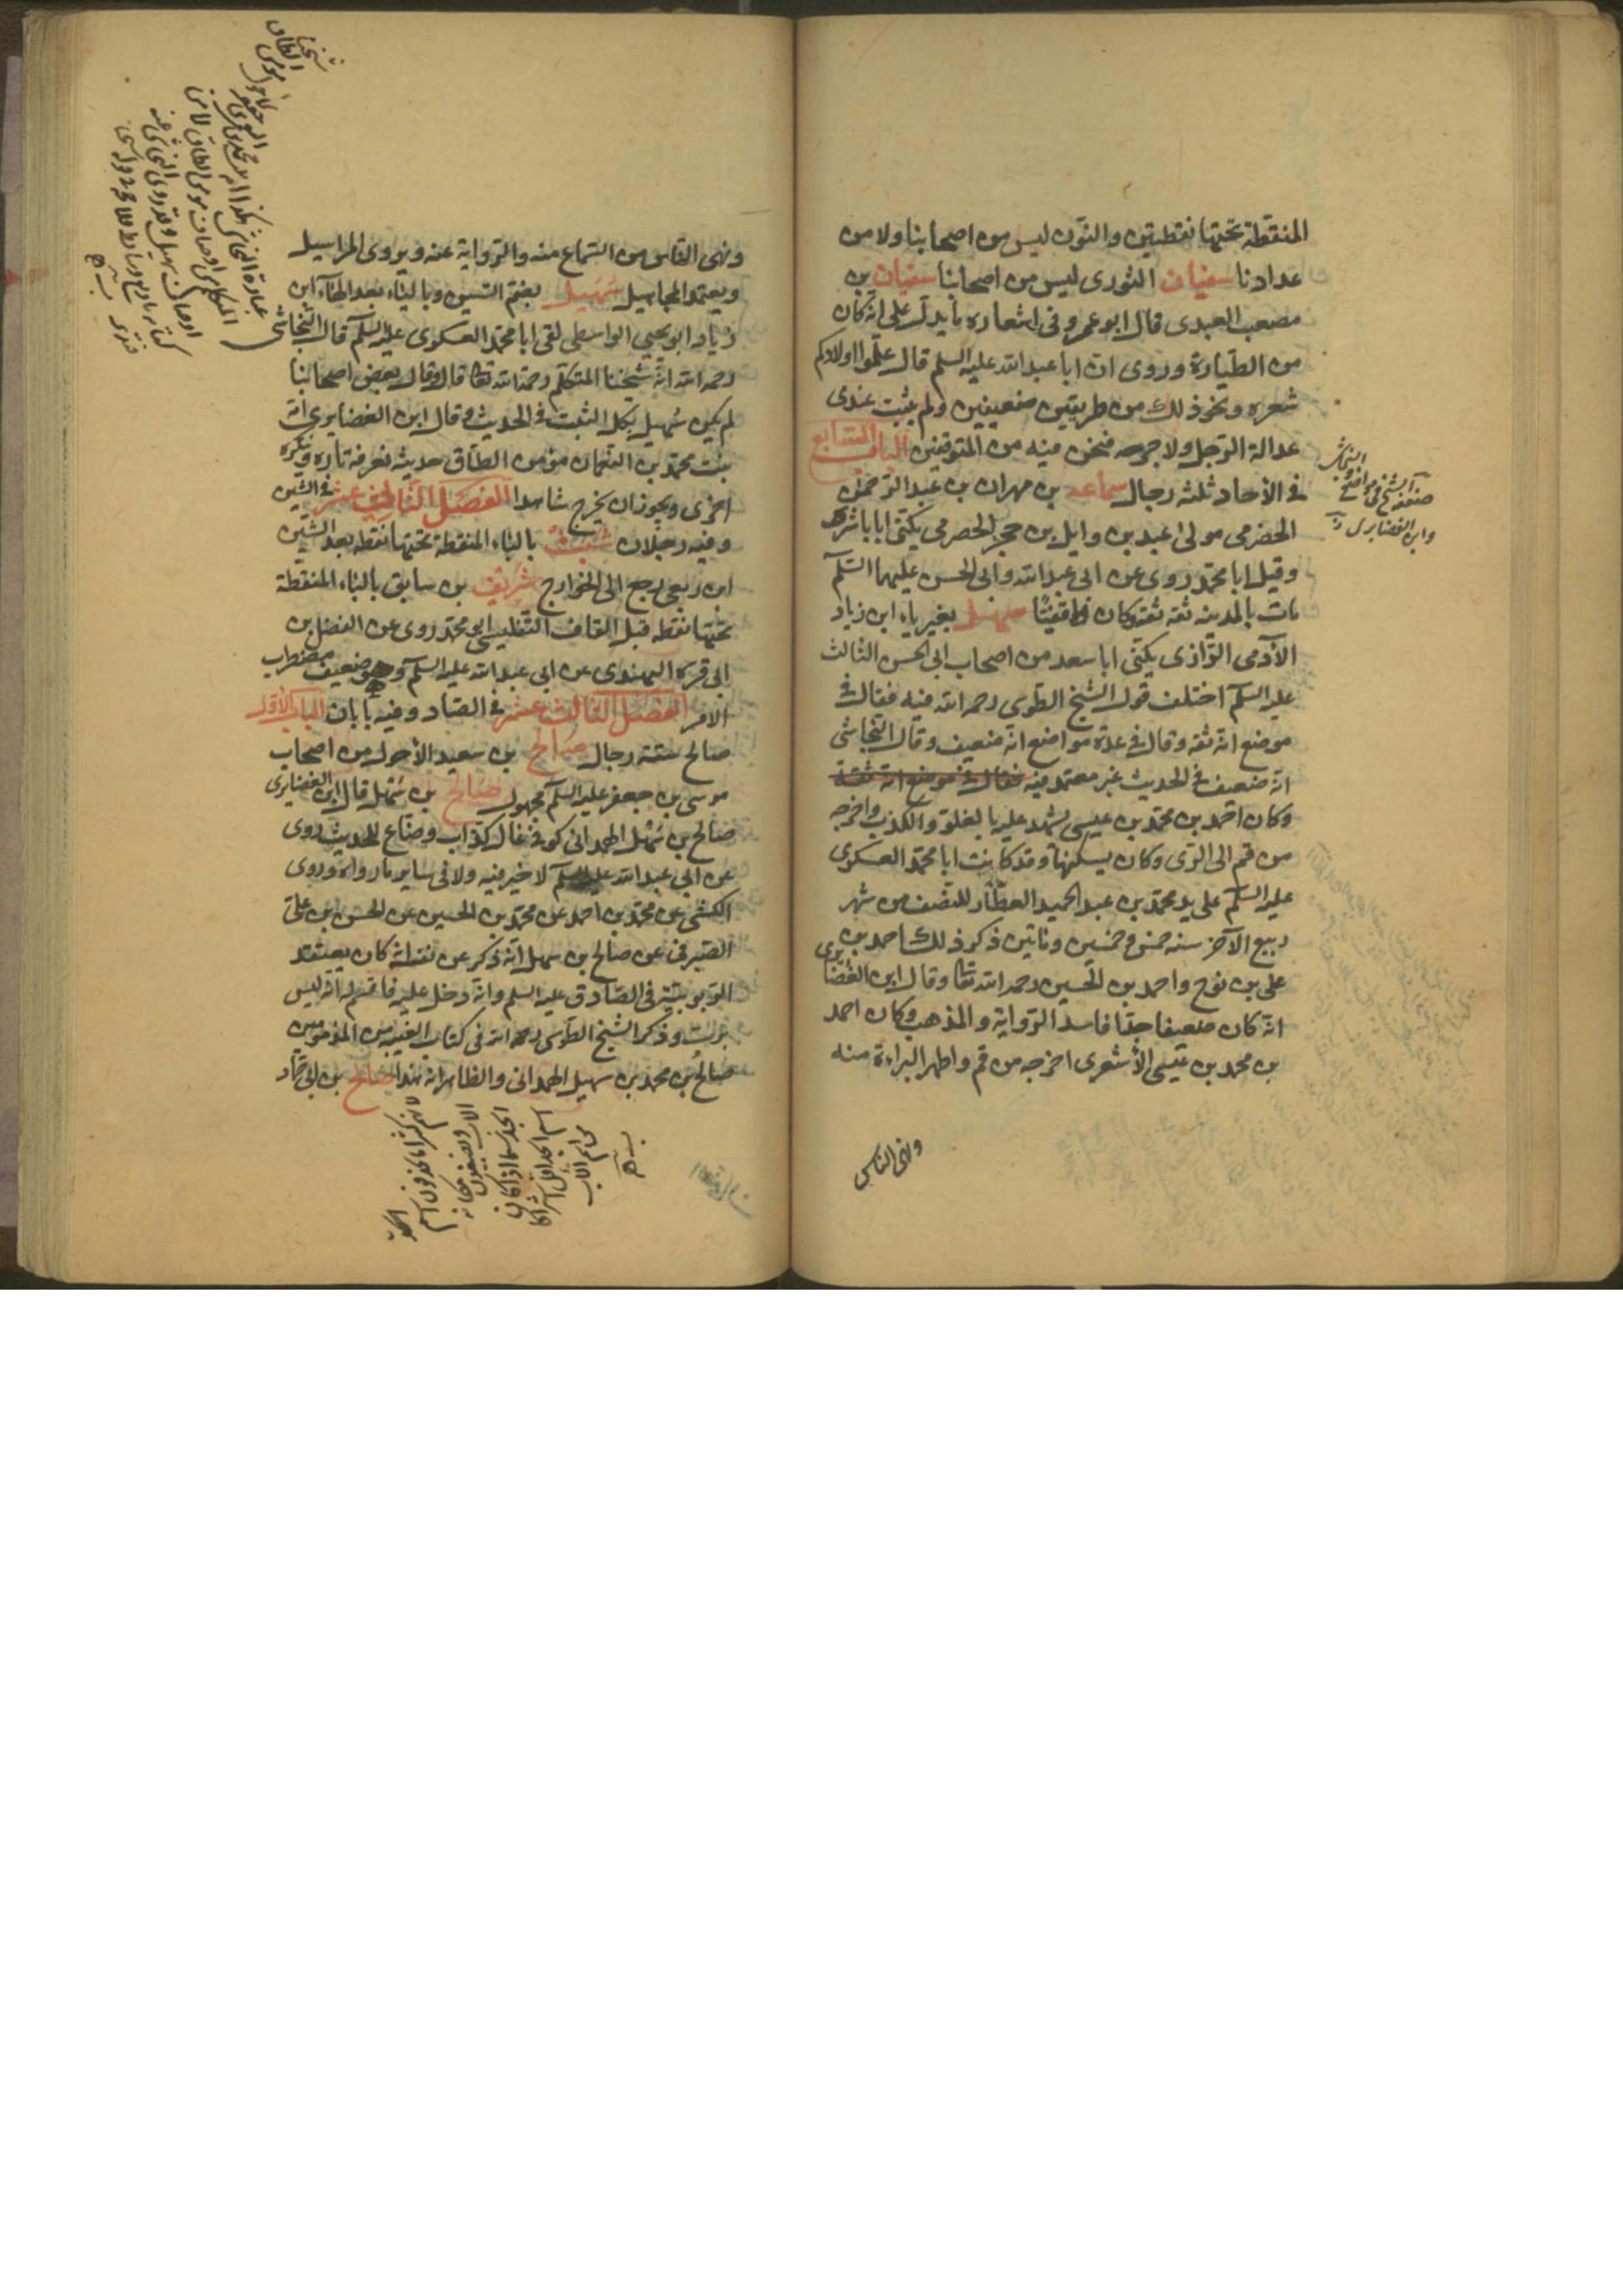 المنقطة تحتها نقطتين والنون ليس من اصحابنا ولا من
عدادنا سفيان الثورى ليس من اصحابنا سفيان بن
مصعب العبدى قال ابو عمرو فى اشعاره ما يدل على انه كان
من الطيارة وروى ان ابا عبد الله عليه السلم قال علموا اولادكم
شعره ونحو ذلك من طريقين ضعيفين ولم يثبت عندى
عدالة الرجل ولا جرحه فنحن فيه من المتوقفين الباب السابع
فى الآحاد ثلثة رجال سماعه بن مهران بن عبد الرحمن
الحضرمى مولى عبد بن وايل بن حجر الحضرمى يكنى ابا ناشره
وقيل ابا محمد روى عن ابى عبد الله وابى الحسن عليهما السلم
مات بالمدينه ثقه ثقه وكان واقفيا سهل بغير ياء ابن زياد
الآدمى الرازى يكنى ابا سعيد من اصحاب ابى الحسن الثالث
عليه السلم اختلف قول الشيخ الطوسى رحمه الله فيه فقال فى
موضع انه ثقه وقال فى عدة مواضع انه ضعيف وقال النجاشى
انه ضعيف فى الحديث غير معتمد فيه فقال فى موضع انه ثقة
وكان احمد بن محمد بن عيسى يشهد عليه بالغلو والكذب واخرجه
من قم الى الرى وكان يسكنها وقد كاتب ابا محمد العسكرى
عليه السلم على يد محمد بن عبد الحميد العطار للنصف من شهر
ربيع الآخر سنه خمس وخمسين وماتين ذكر ذلك احمد بن
على بن نوح واحمد بن الحسين رحمه الله تعا وقال ابن الغضايرى
انه كان ضعيفا جدا فاسد الرواية والمذهب وكان احمد
بن محمد بن عيسى الأشعرى اخرجه من قم واظهر البراءة منه
ونهى الناس
ضعفه الشيخ فى مواضع والنجاشى
وابن الغضايرى
ونهى الناس من السماع منه والرواية عنه ويروى المراسيل
ويعتمد المجاهيل سهيل بضم السين وبالياء بعد الهاء ابن
زياد ابو يحيى الواسطى لقى ابا محمد العسكرى عليه السلم قال النجاشى
رحمه الله انه شيخنا المتكلم رحمة الله تعا قال وقال بعض اصحابنا
لم يكن سهيل بكل الثبت فى الحديث وقال ابن الغضايرى امه
بنت محمد بن النعمان مؤمن الطاق حديثه نعرفه تارة وننكره
اخرى ويجوز ان يخرج شاهدا الفصل الثانى عشر فى الشين
وفيه رجلان شبث بالباء المنقطة تحتها نقطه بعد الشين
ابن ربعى رجع الى الخوارج شريف بن سابق بالباء المنقطة
تحتها نقطه قبل القاف التفليسى ابو محمد روى عن الفضل بن
ابى قره السهندى عن ابى عبد الله عليه السلم وهو ضعيف مضطرب
الامر الفصل الثالث عشر فى الصاد وفيه بابان الباب الأول
صالح ستة رجال صالح بن سعيد الأحول من اصحاب
موسى بن جعفر عليه السلم مجهول صالح بن سهل قال ابن الغضايرى
صالح بن سهل الهمدانى كوفى غال كذاب وضاع للحديث روى
عن ابى عبد الله عليه السلم لا خير فيه ولا فى ساير ما رواه وروى
الكشى عن محمد بن احمد عن محمد بن الحسين عن الحسن بن على
الصيرفى عن صالح بن سهل انه ذكر عن نفسه انه كان يعتقد
الربوبية فى الصادق عليه السلم وانه دخل عليه فاقسم له انه ليس
برب وذكر الشيخ الطوسى رحمه الله فى كتاب الغيبه من المذمومين
صالح بن محمد بن سهيل الهمدانى والظاهر انه هذا صالح بن ابى حماد
عبارة النجاشى